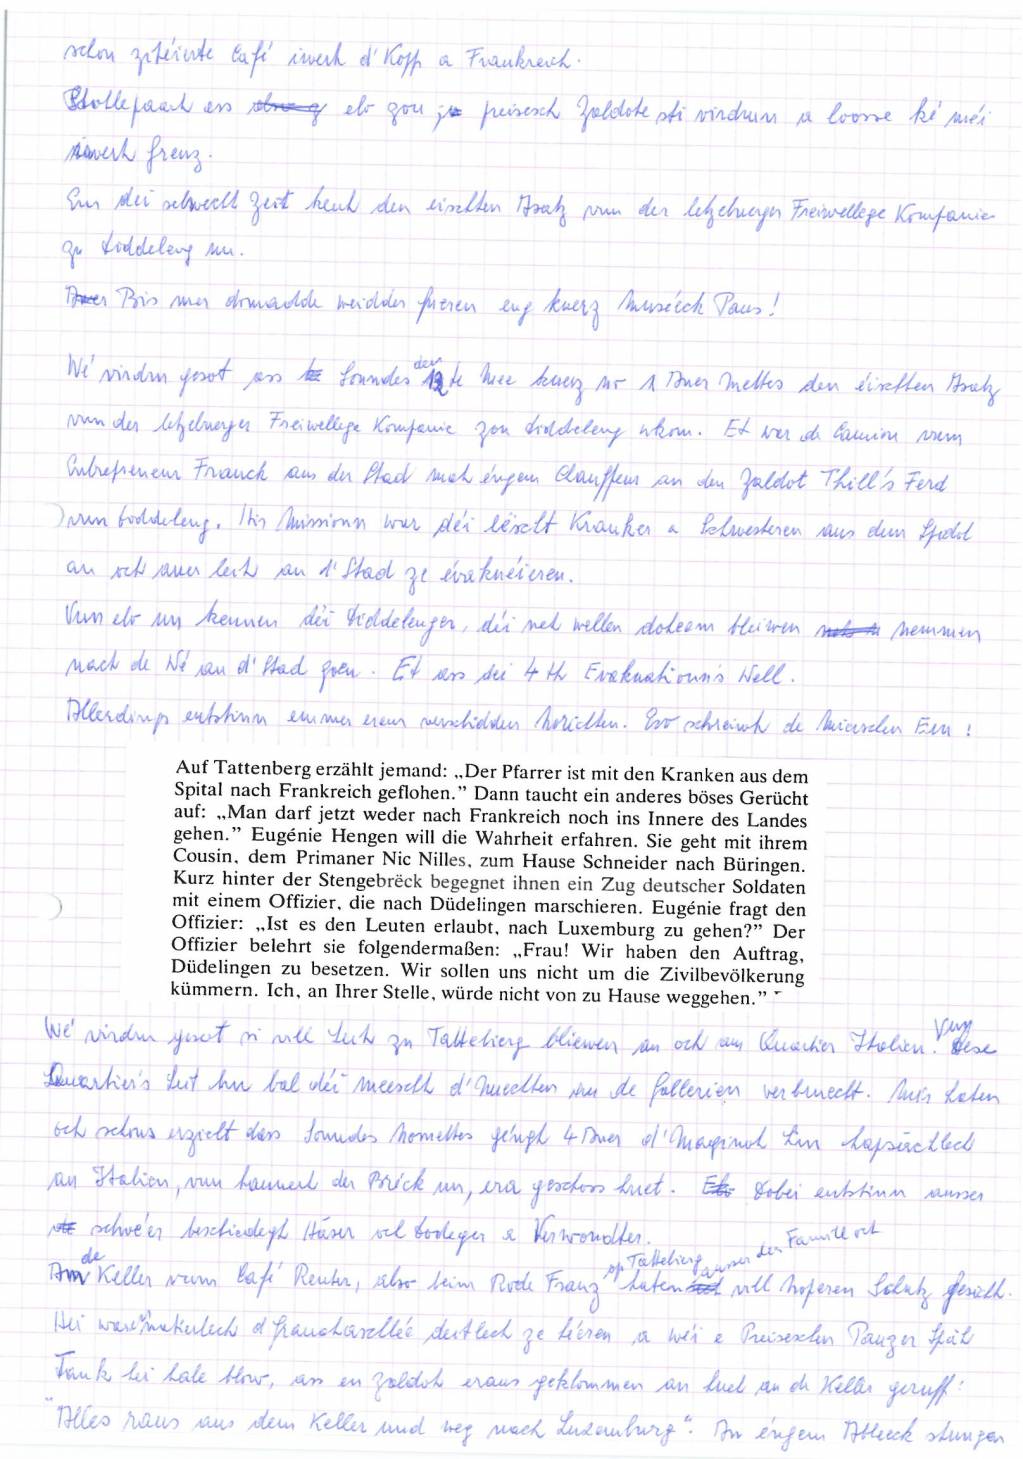 schon zitéierte Café iwerh d' Kopp a Frankreich.
Stollepaart ass elo zou je preisesch Zaldote sti virdrun a loosse ké méi
iwerh Grenz.
Em déi selwecht Zeit heut den eischten Asatz vun der letzebuerger Freiwellege Kompanie
zu Diddeleng un.
Bis mer domadde weidder fueren eng kuerz Museéck Paus!
Wé virdru gesot ass Sonndes den 12te Mee kuerz no 1 Auer Mettes den éischten Asatz
vun der letzebuerger Freiwellege Kompanie zou Diddeleng ukom. Et war de Camion vum
Entrepreneur Franck aus der Stad mat éngem Chauffeur an den Zaldot Thill's Ferd
vun Diddeleng. Hir Missioun war déi lëscht Kranker a Schwesteren aus dem Spidol
an och aner Leit an d' Stad ze évakuéieren.
Vun elo un kennen déi Diddelenger, déi net wellen doheem bleiwen nemmen
nach de Wé an d' Stad goen. Et ass déi 4th Evakuatioun's Well.
Allerdings entstinn emmer erem verschidden Noriichten. Eso schreiwt de Mierschen Een:
Auf Tattenberg erzählt jemand: „Der Pfarrer ist mit den Kranken aus dem
Spital nach Frankreich geflohen.” Dann taucht ein anderes böses Gerücht
auf: „Man darf jetzt weder nach Frankreich noch ins Innere des Landes
gehen.” Eugénie Hengen will die Wahrheit erfahren. Sie geht mit ihrem
Cousin, dem Primaner Nic Nilles, zum Hause Schneider nach Büringen.
Kurz hinter der Stengebrëck begegnet ihnen ein Zug deutscher Soldaten
mit einem Offizier, die nach Düdelingen marschieren. Eugénie fragt den
Offizier: „Ist es den Leuten erlaubt, nach Luxemburg zu gehen?” Der
Offizier belehrt sie folgendermaßen: „Frau! Wir haben den Auftrag,
Düdelingen zu besetzen. Wir sollen uns nicht um die Zivilbevölkerung
kümmern. Ich, an Ihrer Stelle, würde nicht von zu Hause weggehen.”
Wé virdru gesot si vill Leit zu Tattebierg bliewen an och am Quartier Italien. Vun dese
Quartier's Leit hu bal déi meescht d' Nuechten an de Gallerien verbruecht. Mir haten
och schons erzielt dass Sonndes Nomettes géngh 4 Auer d' Maginot Linn hapsächlech
an Italien, vun hannert der Bréck un, era geschoss huet. Dobei entstinn ausser
schwéer beschiedegt Häser och Doudeger a Verwondter.
Am de Keller vum Café Reuter, also beim Rode Franz op Tattebierg haten ausser der Famill och vill Noperen Schutz gesicht.
Hei waren d' deitlech ze héieren, a wéi e Preiseschen Panzer Späh
Tank hei hale blouw, ass en Zaldot eraus geklommen an huet an de Keller geruff:
"Alles raus aus dem Keller und weg nach Luxemburg". An éngem Ableeck stungen